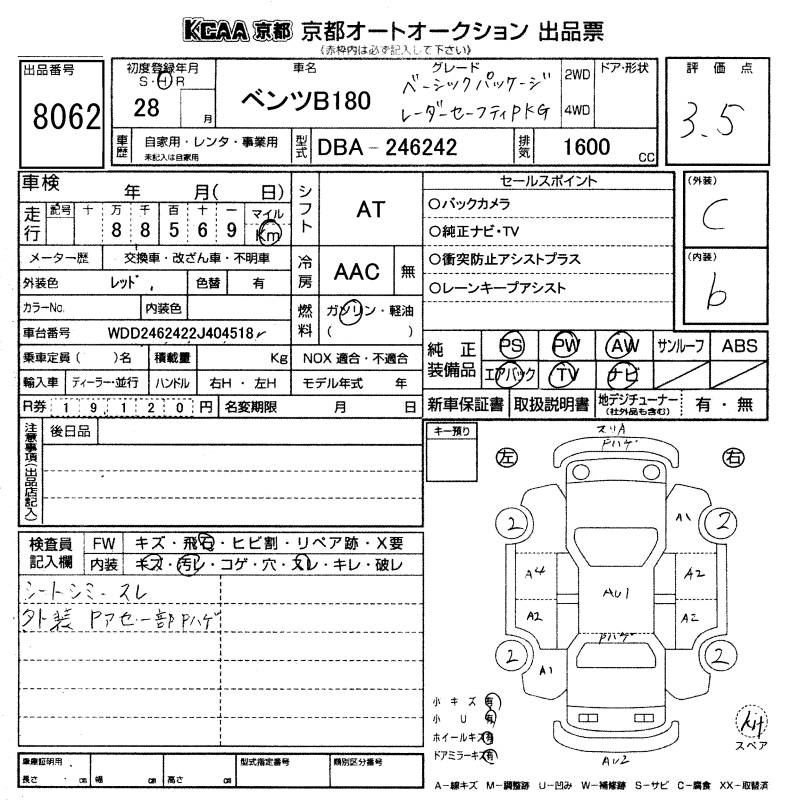 KCAA 京都 京都オートオークション 出品票
《赤枠内は必ず記入して下さい》
出品番号
8062
初度登録年月
S・H・R
28
月
車名
ベンツB180
グレード
ベーシックパッケージ
レーダーセーフティPKG
2WD
4WD
ドア・形状
評価点
3.5
車歴
自家用・レンタ・事業用
未記入は自家用
型式
DBA-246242
排気
1600
CC
車検
年 月( 日)
走行
記号 十 万 千 百 十 一 マイル
8 8 5 6 9 Km
メーター歴 交換車・改ざん車・不明車
外装色 レッド 色替 有
カラーNo. 内装色
車台番号 WDD2462422J404518
乗車定員( )名 積載量 Kg
輸入車 ディーラー・並行 ハンドル 右H・左H
R券 1 9 1 2 0 円 名変期限 月 日
シフト
AT
冷房
AAC
無
燃料
ガソリン・軽油
( )
NOX 適合・不適合
モデル年式 年
セールスポイント
○バックカメラ
○純正ナビ・TV
○衝突防止アシストプラス
○レーンキープアシスト
(外装)
C
(内装)
b
純正装備品
PS PW AW サンルーフ ABS
エアバック TV ナビ
新車保証書 取扱説明書 地デジチューナー
(社外品も含む)
有・無
注意事項(出品店記入)
後日品
検査員記入欄
FW キズ・飛石・ヒビ割・リペア跡・X要
内装 キズ・汚レ・コゲ・穴・スレ・キレ・破レ
シートシミー スレ
外装 Pアセー部Pハゲ
キー預り
左
右
スリA
Pハゲ
2
2
A1
A4
A2
AU1
A2
A2
Pハゲ
2
2
A1
AU2
小キズ 有
小U 有
ホイールキズ 有
ドアミラーキズ 有
kit
スペア
車庫証明用
長さ ・ cm 幅 cm 高さ cm
型式指定番号
類別区分番号
A-線キズ M-調整跡 U-凹み W-補修跡 S-サビ C-腐食 XX-取替済